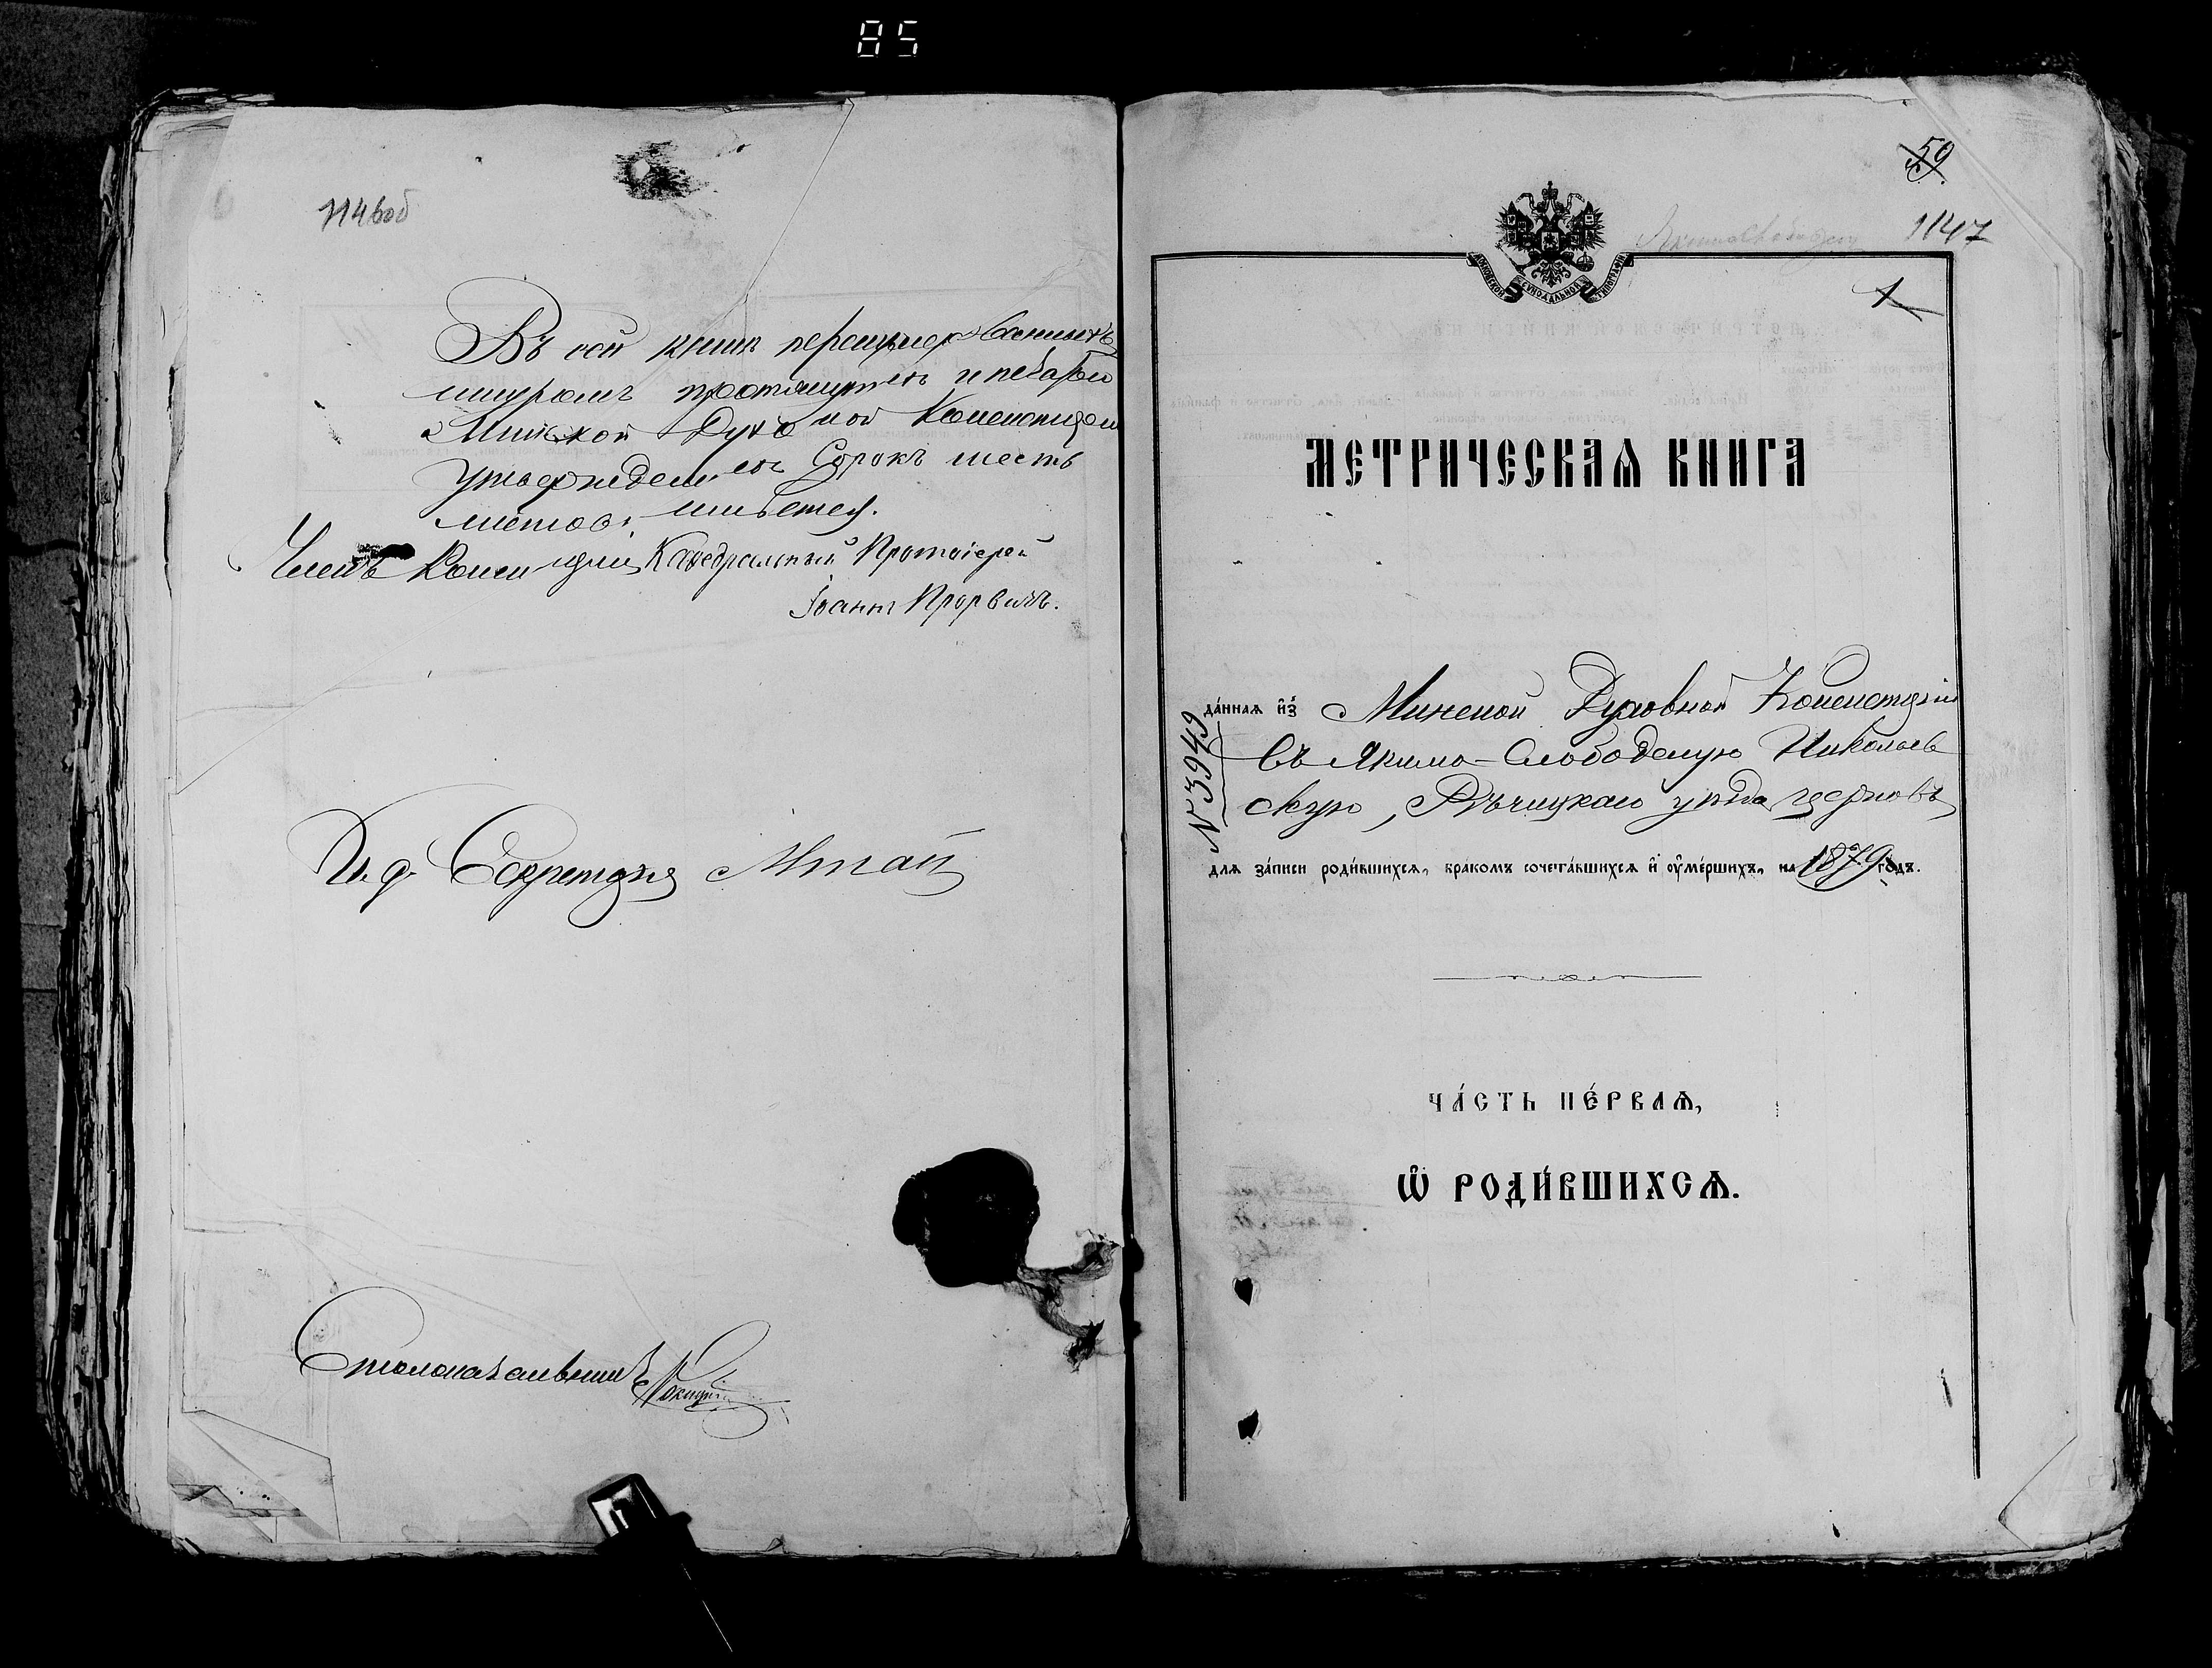 85
1146об
Въ сей книгѣ перенумерованныхъ
шнуромъ протянутыхъ и печатью
Минской Духовной Консисторіи
утвержденныхъ Сорокъ шесть
листовъ имѣется.
Членъ Консисторіи, Каѳедральный Протоіерей
Іоаннъ
И. д. Секретаря
Столоначальникъ
59
1147
1
МОСКОВСКОЙ СѴНОДАЛЬНОЙ ТИПОГРАФІИ
МЕТРИЧЕСКАѦ КНИГА
да́ннаѧ и҆з̾ Минской Духовной Консисторіи
въ Якимо-Слободскую Николаев
скую, Рѣчицкаго уѣзда церковь
№ 3949
для за́писи роди́вшихсѧ, бра́комъ сочета́вшихсѧ и҆ оу҆ме́ршихъ, на 1879 го́дъ.
ЧА́СТЬ ПЕ́РВАѦ,
Ѽ РОДИ́ВШИХСѦ.